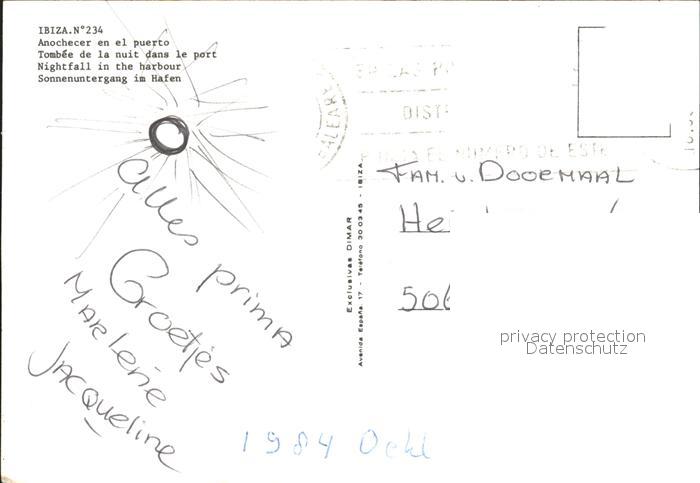 IBIZA.N°234
Anochecer en el puerto
Tombée de la nuit dans le port
Nightfall in the harbour
Sonnenuntergang im Hafen
Alles prima
Groetjes
Marlène
Jacqueline
1984
Exclusivas DIMAR
Avenida España, 17 - Teléfono 30 03 45 - IBIZA
BALEARE
EN LAS
DIST
EL NUMERO DE ESTE
FAM. v. DOOEMAAL
He
506
privacy protection
Datenschutz